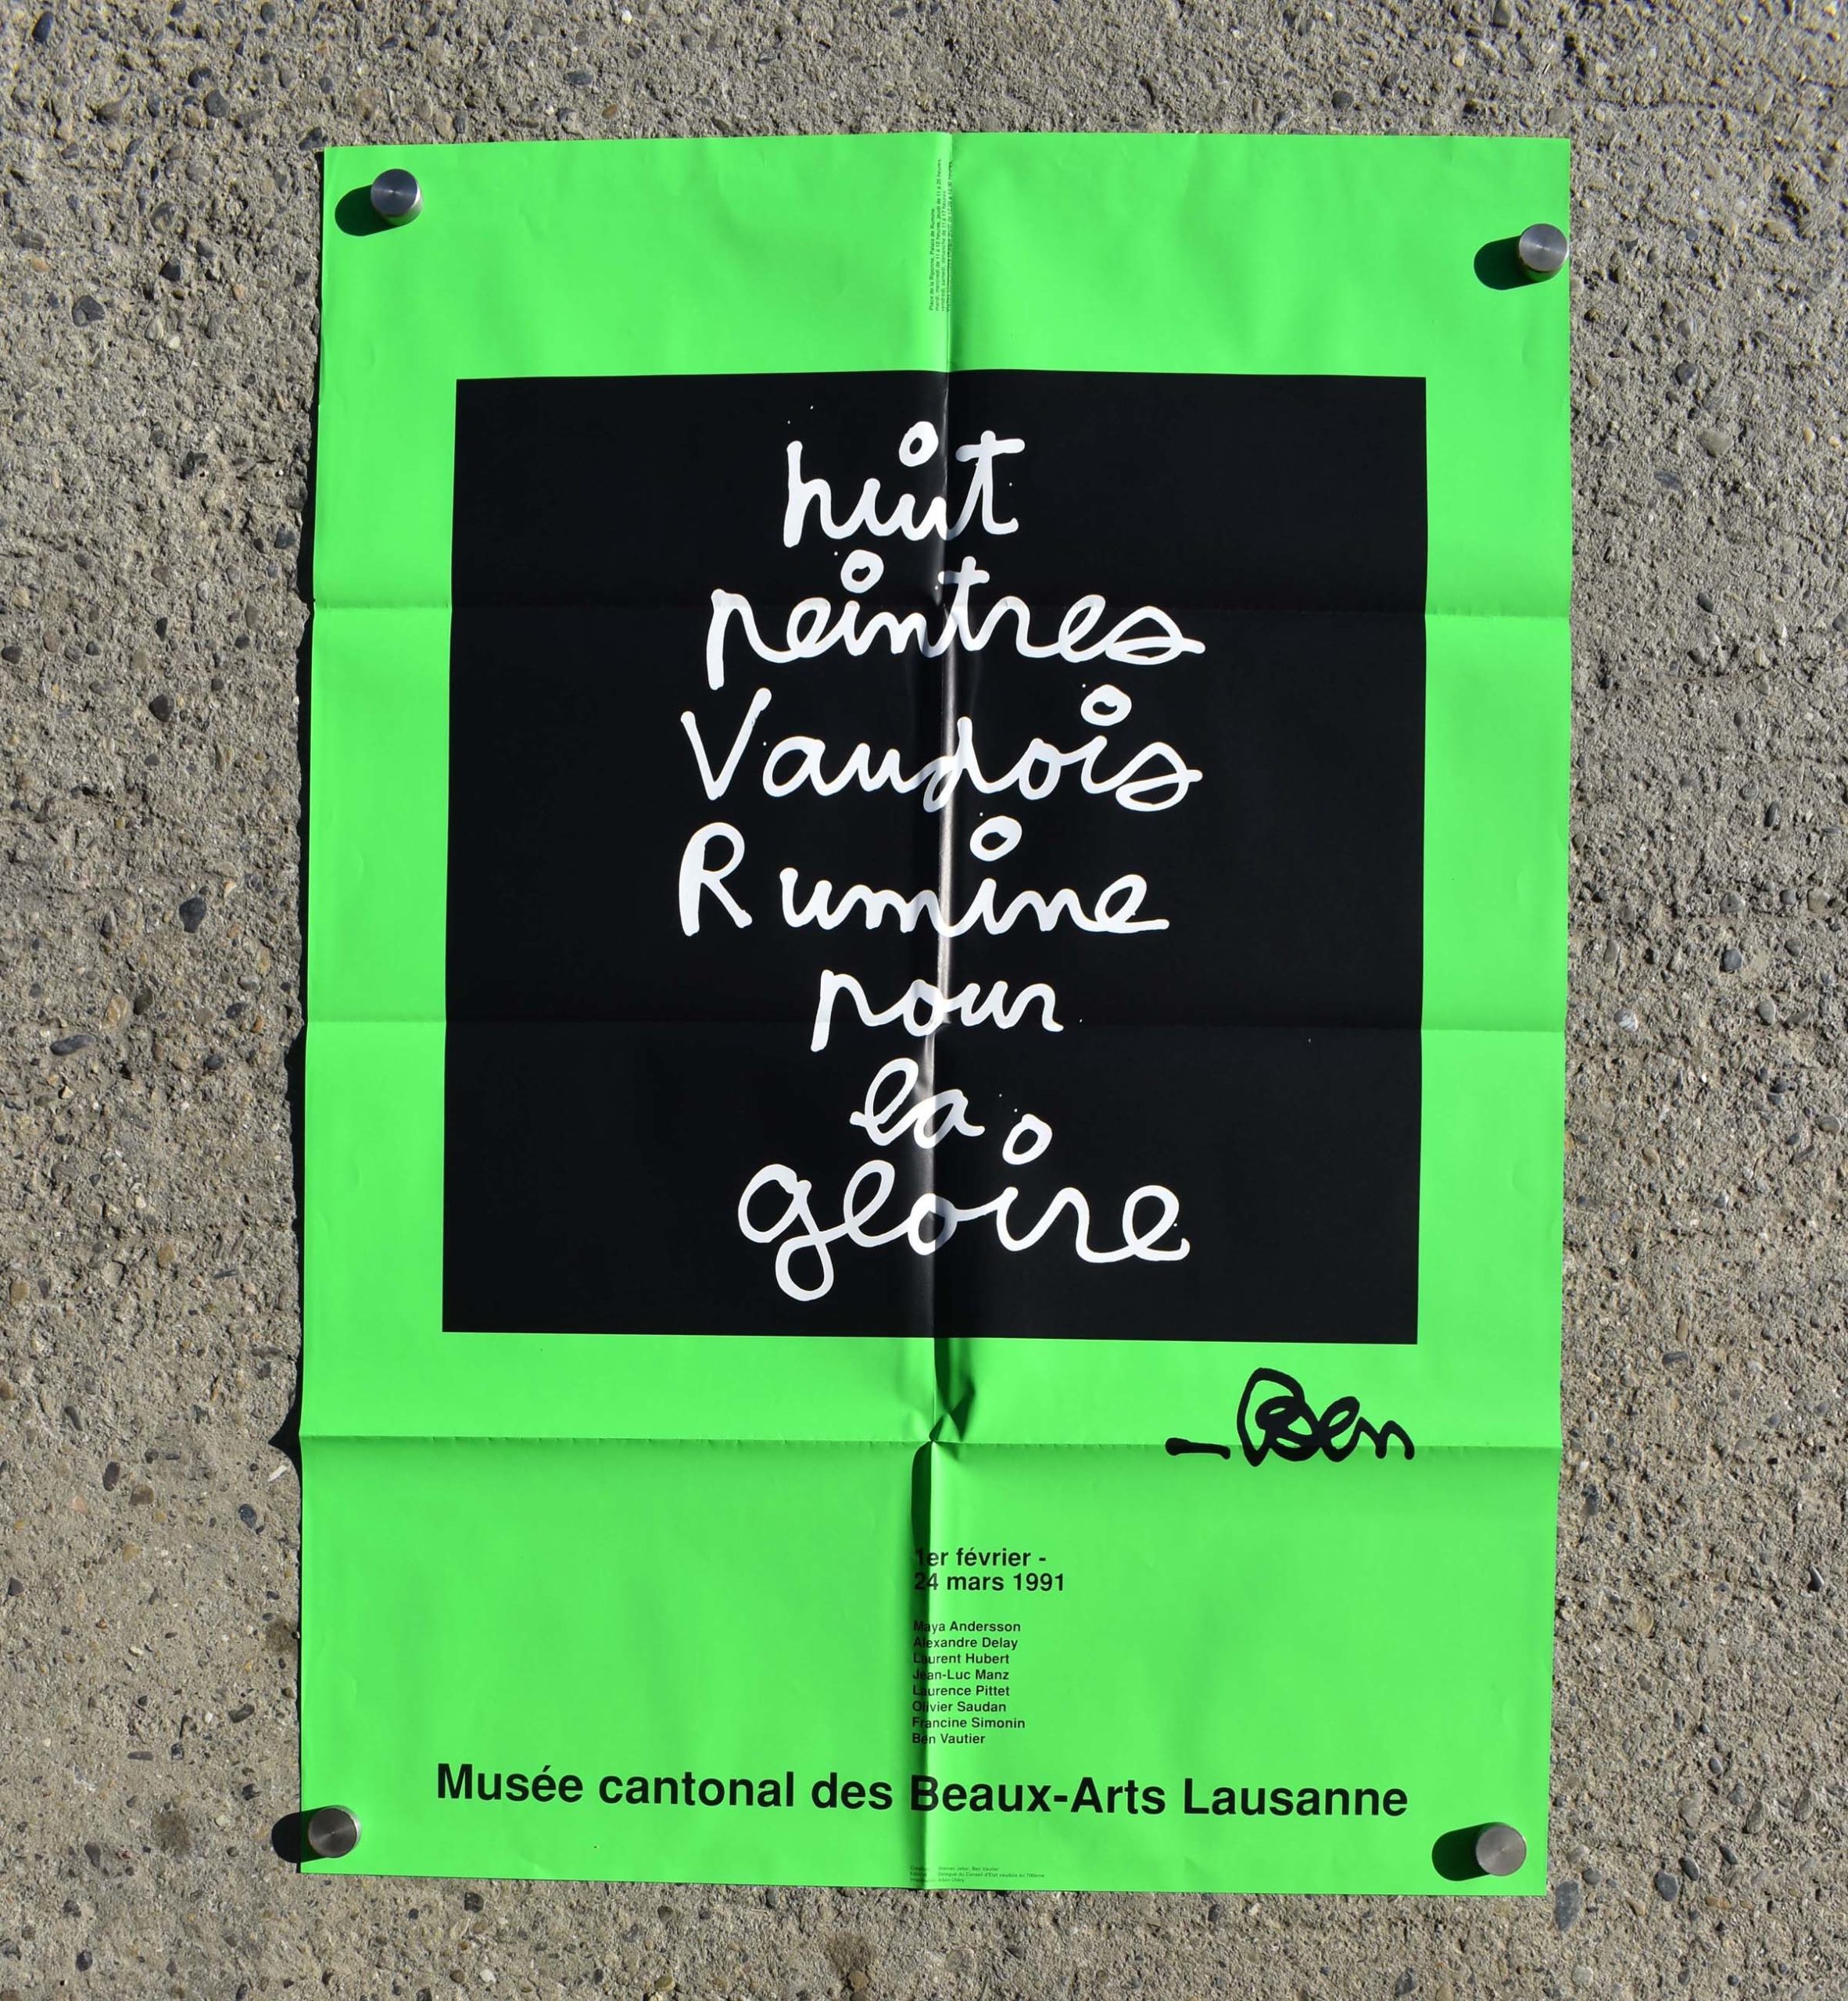 Place de la Riponne, Palais de Rumine
huit
peintres
Vaudois
Rumine
pour
la
gloire
_Ben
1er février -
24 mars 1991
Maya Andersson
Alexandre Delay
Laurent Hubert
Jean-Luc Manz
Laurence Pittet
Olivier Saudan
Francine Simonin
Ben Vautier
Musée cantonal des Beaux-Arts Lausanne